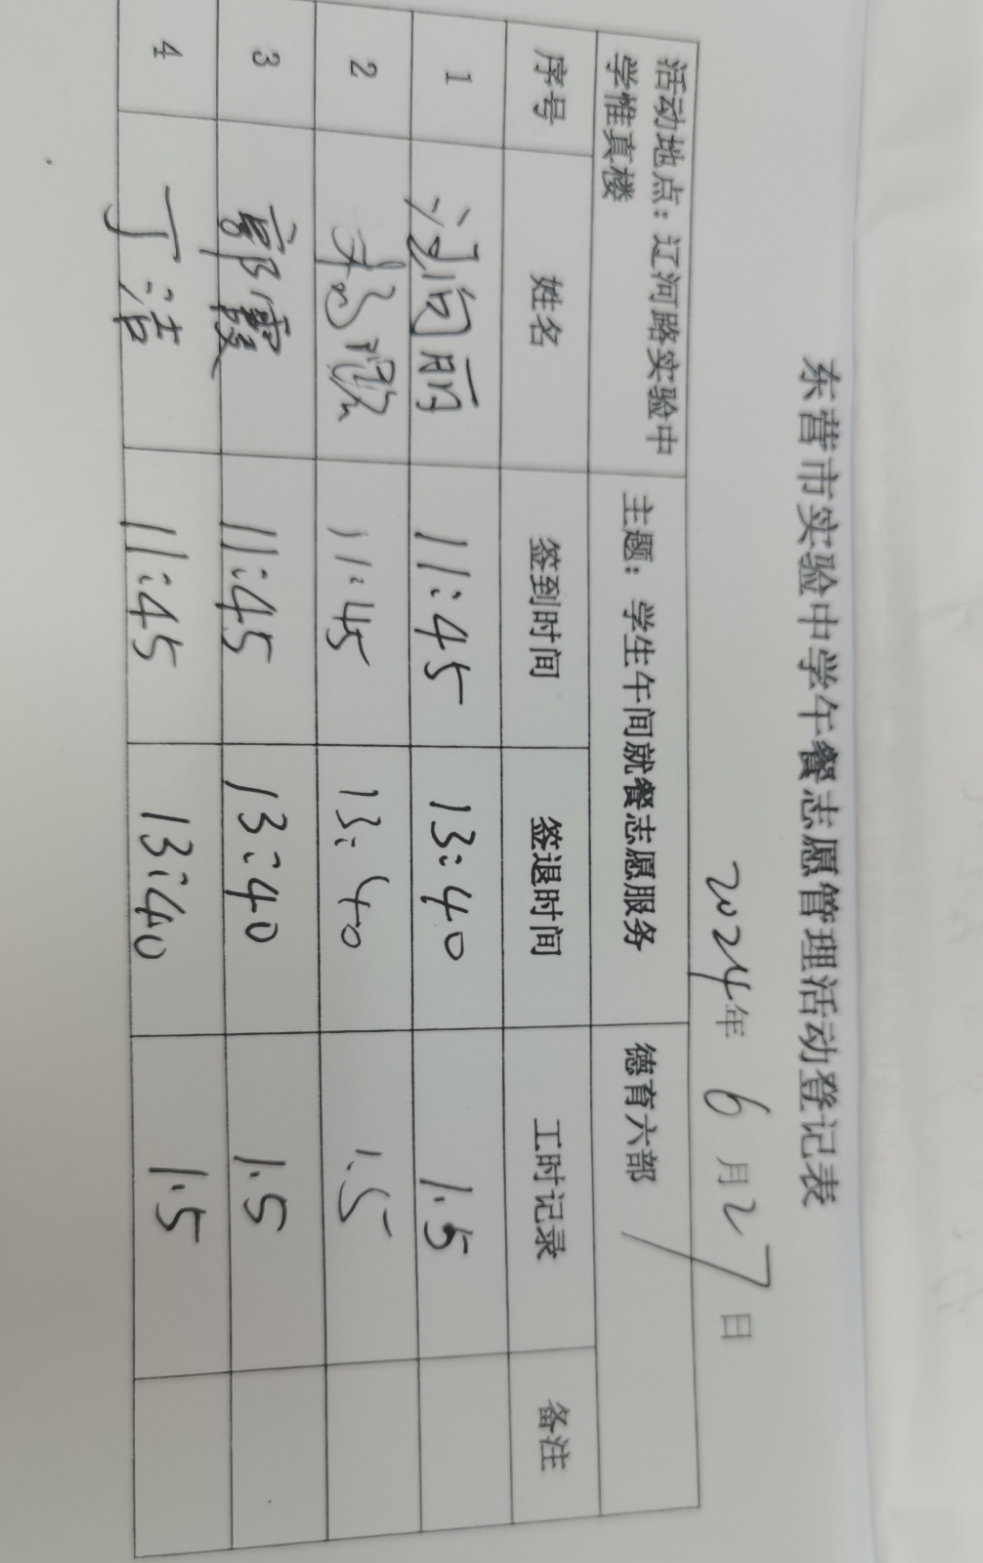 东营市实验中学午餐志愿管理活动登记表
2024年 6月27日
活动地点：辽河路实验中学惟真楼 主题：学生午间就餐志愿服务 德育六部
序号 姓名 签到时间 签退时间 工时记录 备注
1 11:45 13:40 1.5
2 11:45 13:40 1.5
3 郭霞 11:45 13:40 1.5
4 丁洁 11:45 13:40 1.5